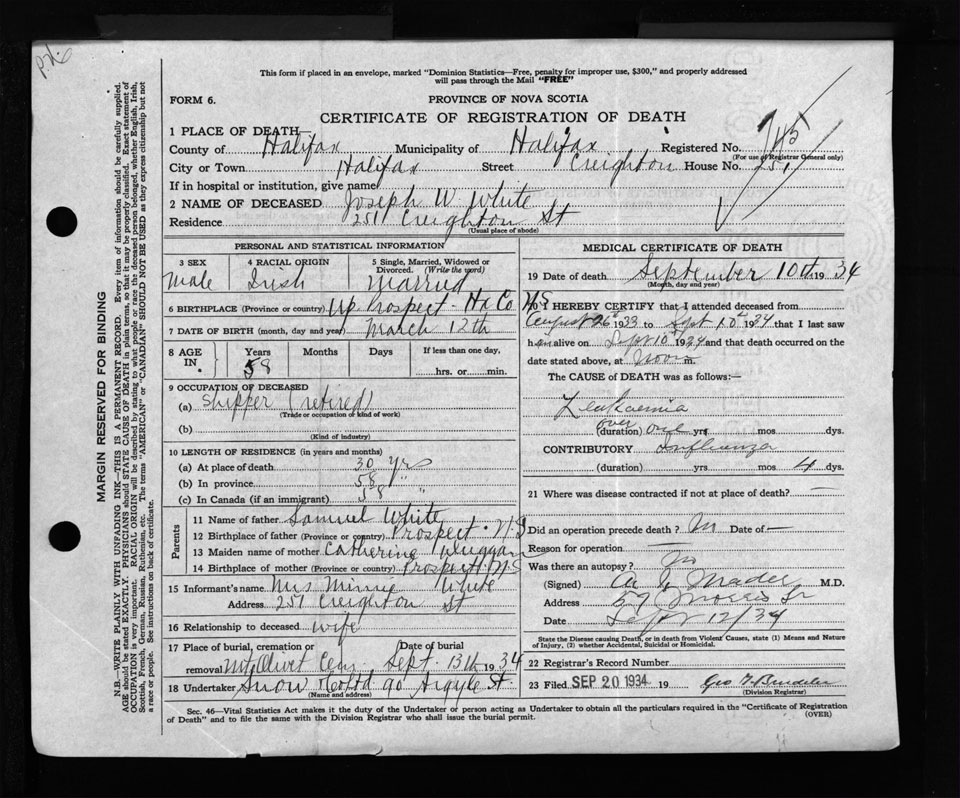 This form if placed in an envelope, marked "Dominion Statistics—Free, penalty for improper use, $300," and properly addressed
will pass through the Mail "FREE"
FORM 6.
PROVINCE OF NOVA SCOTIA
CERTIFICATE OF REGISTRATION OF DEATH
1 PLACE OF DEATH
County of Halifax Municipality of Halifax Registered No. 745
(For use of Registrar General only)
City or Town Halifax Street Creighton House No. 251
If in hospital or institution, give name
2 NAME OF DECEASED Joseph W. White
Residence 251 Creighton St
(Usual place of abode)
PERSONAL AND STATISTICAL INFORMATION
3 SEX 4 RACIAL ORIGIN 5 Single, Married, Widowed or
Divorced. (Write the word)
Male Irish Married
6 BIRTHPLACE (Province or country) Up. Prospect - Hx Co N.S.
7 DATE OF BIRTH (month, day and year) March 12th
8 AGE IN. Years Months Days If less than one day,
58 ....hrs. or ....min.
9 OCCUPATION OF DECEASED
(a) Shipper (retired)
(Trade or occupation or kind of work)
(b)
(Kind of industry)
10 LENGTH OF RESIDENCE (in years and months)
(a) At place of death 30 yrs
(b) In province 58 "
(c) In Canada (if an immigrant) 58 "
Parents
11 Name of father Samuel White
12 Birthplace of father (Province or country) Prospect. N.S
13 Maiden name of mother Catherine Duggan
14 Birthplace of mother (Province or country) Prospect N.S
15 Informant's name Mrs Minnie White
Address 251 Creighton St
16 Relationship to deceased wife
17 Place of burial, cremation or Date of burial
removal Mt Olivet Cem Sept. 13th 1934
18 Undertaker Snow & Co Ltd 90 Argyle St.
(Name and address)
MEDICAL CERTIFICATE OF DEATH
19 Date of death September 10th 1934
(Month, day and year)
20 I HEREBY CERTIFY that I attended deceased from
August 26th 1933 to Sept 10th 1934 that I last saw
him alive on Sept 10th 1934 and that death occurred on the
date stated above, at Noon m.
The CAUSE of DEATH was as follows:—
Leukaemia
over
(duration) one yrs mos dys.
CONTRIBUTORY Influenza
(duration) yrs mos 4 dys.
21 Where was disease contracted if not at place of death? —
Did an operation precede death? No Date of —
Reason for operation —
Was there an autopsy? No
(Signed) Mader M.D.
Address 57 Morris St
Date Sept 12/34
State the Disease causing Death, or in death from Violent Causes, state (1) Means and Nature
of Injury, (2) whether Accidental, Suicidal or Homicidal.
22 Registrar's Record Number
23 Filed SEP 20 1934 19 Geo
(Division Registrar)
Sec. 46—Vital Statistics Act makes it the duty of the Undertaker or person acting as Undertaker to obtain all the particulars required in the "Certificate of Registration
of Death" and to file the same with the Division Registrar who shall issue the burial permit. (OVER)
MARGIN RESERVED FOR BINDING
N.B.—WRITE PLAINLY WITH UNFADING INK—THIS IS A PERMANENT RECORD. Every item of information should be carefully supplied.
AGE should be stated EXACTLY. PHYSICIANS should STATE CAUSE OF DEATH in plain terms, so that it may be properly classified. Exact statement of
OCCUPATION is very important. RACIAL ORIGIN will be described by stating to what people or race the deceased person belonged, whether English, Irish,
Scottish, French, German, Russian, Ruthenian, etc. The terms "AMERICAN" or "CANADIAN" SHOULD NOT BE USED as they express citizenship but not
a race or people. See instructions on back of certificate.